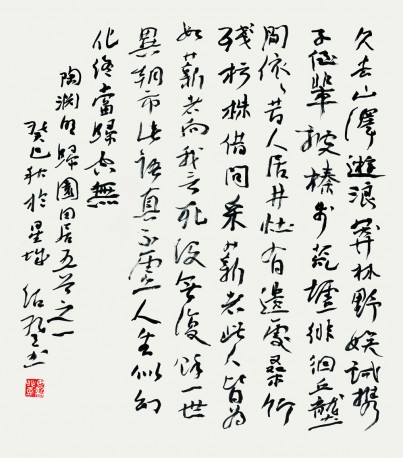 久去山澤遊浪莽林野娱試携
子侄輩披榛步荒墟徘徊丘壟
間依々昔人居井灶有遺處桑竹
残朽株借問采薪者此人皆焉
如薪者向我言死没無復餘一世
異朝市此語真不虚人生似幻
化終當歸空無
陶淵明歸園田居五首之一
癸巳秋於星城 紹書